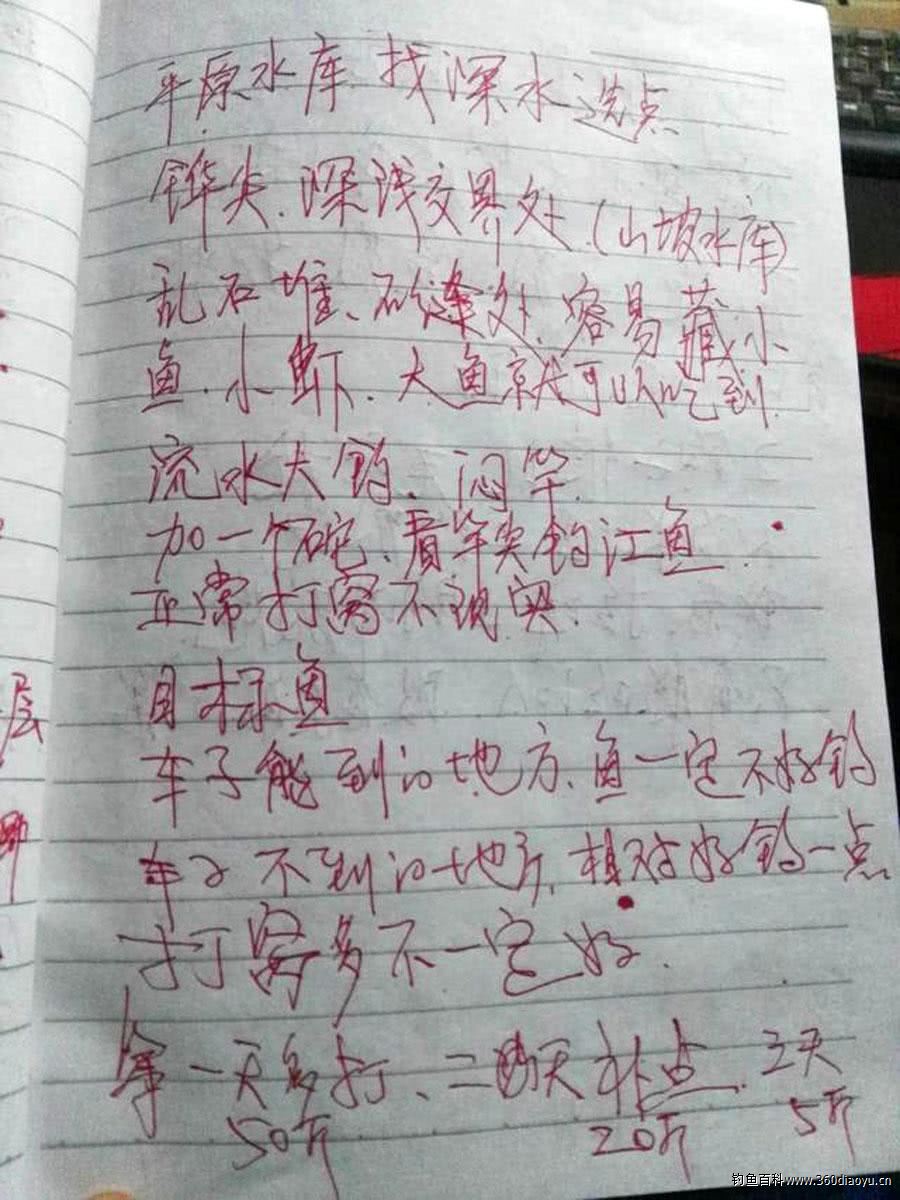 平原水库.找深水选点
铧尖.深浅交界处.(山坡水库)
乱石堆、石缝处.容易藏小
鱼.小虾.大鱼就可以吃到.
流水大钓.闷竿.
加一个砣、看竿尖钓江鱼.
正常打窝不现实.
目标鱼
车子能到的地方.鱼一定不好钓
车子不到的地方.相对好钓一点
打窝多不一定好.
第一天多打、二天补点.三天
50斤 20斤 5斤
层
钓鱼百科www.360diaoyu.cn